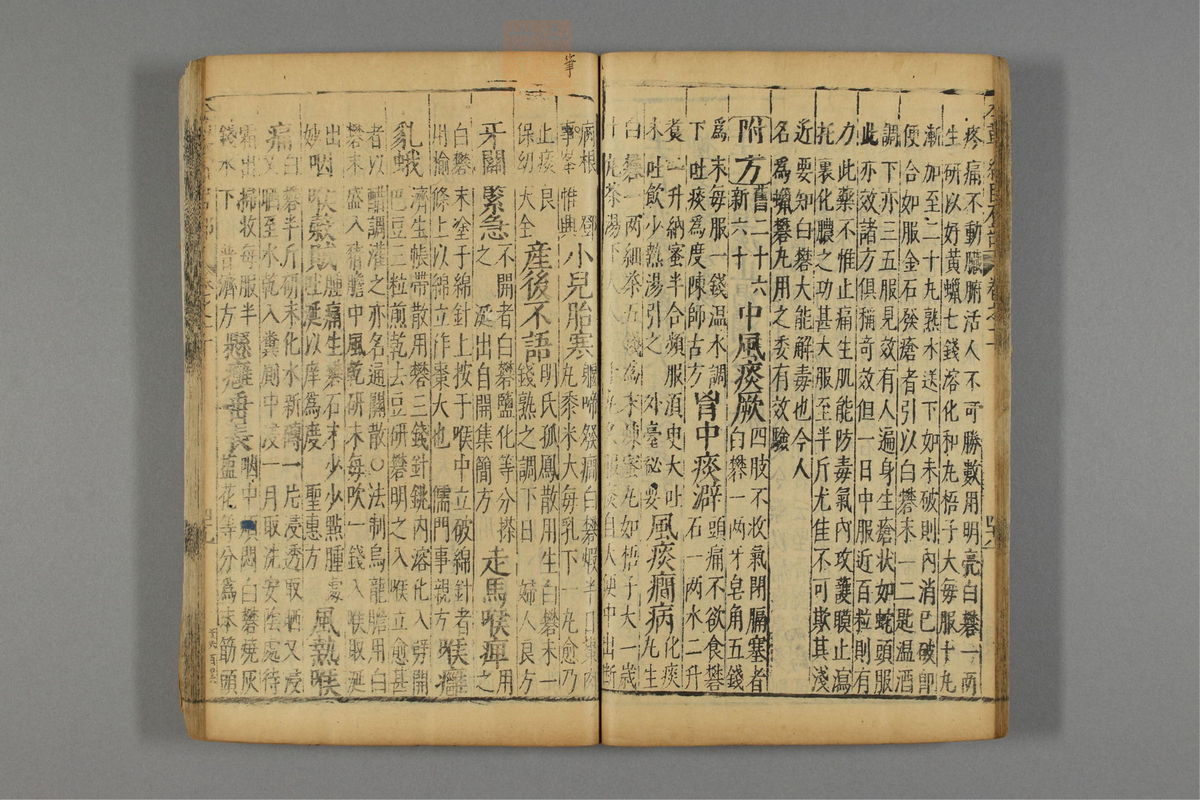 疼痛不動臟腑活人不可勝數用明亮白礬一兩
生研以好黃蠟七錢溶化和丸梧子大每服十丸
漸加至二十丸熟水送下如未破則內消已破卽
便合如服金石發瘡者引以白礬末一二匙溫酒
調下亦三五服見效有人遍身生瘡狀如蛇頭服
此亦效諸方俱稱奇效但一日中服近百粒則有
力此藥不惟止痛生肌能防毒氣內攻護膜止瀉
托裏化膿之功甚大服至半斤尤佳不可欺其淺
近要知白礬大能解毒也今人
名爲蠟礬丸用之委有效驗
附方舊二十六新六十中風痰厥四肢不收氣閉膈塞者白礬一兩牙皂角五錢
爲末每服一錢溫水調下吐痰爲度陳師古方胷中痰澼頭痛不欲食礬石一兩水二升
煮一升納蜜半合頻服須臾大吐
未吐飲少熱湯引之外臺祕要風痰癎病化痰丸生
白礬一兩細茶五錢爲末煉蜜丸如梧子大一歲
十丸茶湯下大人五十丸久服痰自大便中出斷
病根鄧小兒胎寒軀啼發癎白礬煅半日棗肉丸黍米大每乳下一丸愈乃
止去痰良保幼大全產後不語明氏孤鳳散用生白礬末一錢熟水調下 婦人良方
牙關緊急不開者白礬鹽化等分搽之涎出自開集簡方走馬喉痺用
白礬末塗于綿針上按于喉中立破綿針者
用榆條上以綿立作棗大也 儒門事親方喉癰
乳蛾濟生帳帶散用礬三錢鐵銚內溶化入劈開巴豆三粒煎乾去豆研礬用之入喉立愈甚
者以醋調灌之亦名通關散○法制烏龍膽用白
礬末盛入猪膽中風乾研末每吹一錢入喉取涎
出妙咽喉穀賊腫痛生礬石末少少點腫處吐涎以痒爲度 聖惠方風熱喉
痛白礬半斤研末化水新磚一片浸透取晒又浸
又晒至水乾入糞厠中浸一月取洗安陰處待
霜出掃收每服半錢水下 普濟方懸癰垂長咽中煩悶白礬燒灰鹽花等分爲末筯頭